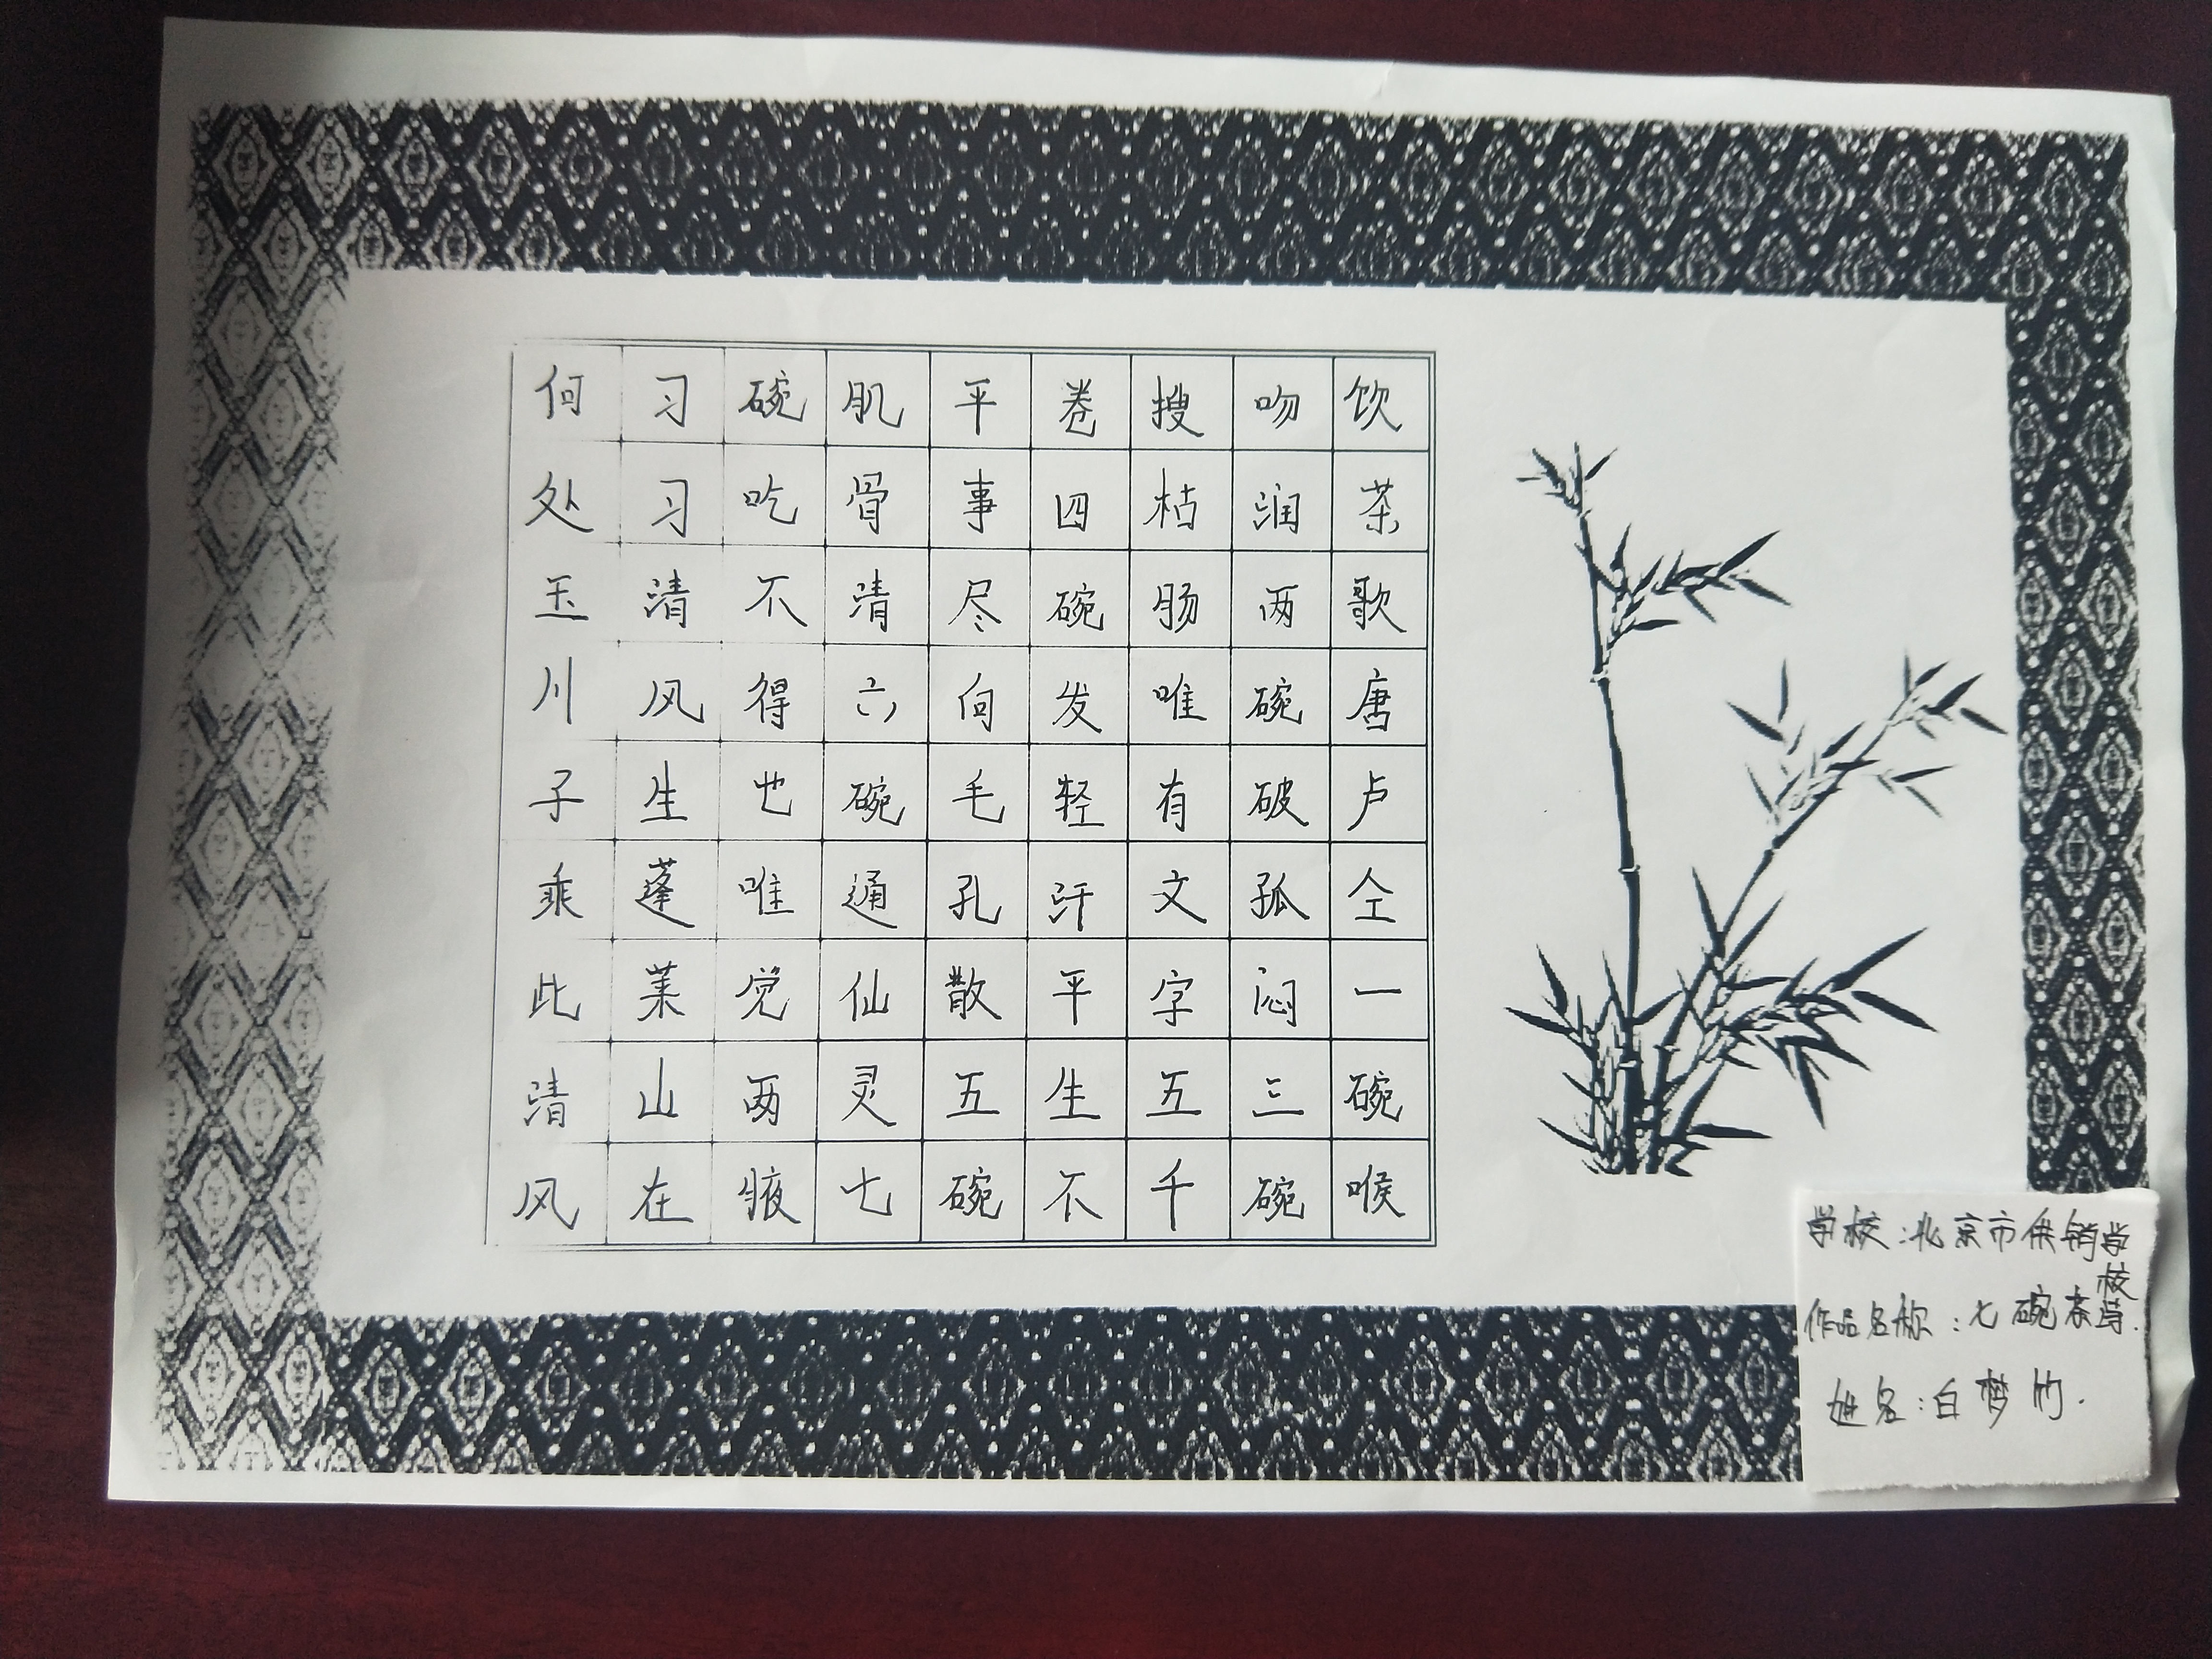 饮茶歌唐卢仝一碗喉
吻润两碗破孤闷三碗
搜枯肠唯有文字五千
卷四碗发轻汗平生不
平事尽向毛孔散五碗
肌骨清六碗通仙灵七
碗吃不得也唯觉两腋
习习清风生蓬莱山在
何处玉川子乘此清风
学校:北京市供销学校
作品名称:七碗茶诗.
姓名:白梦竹.